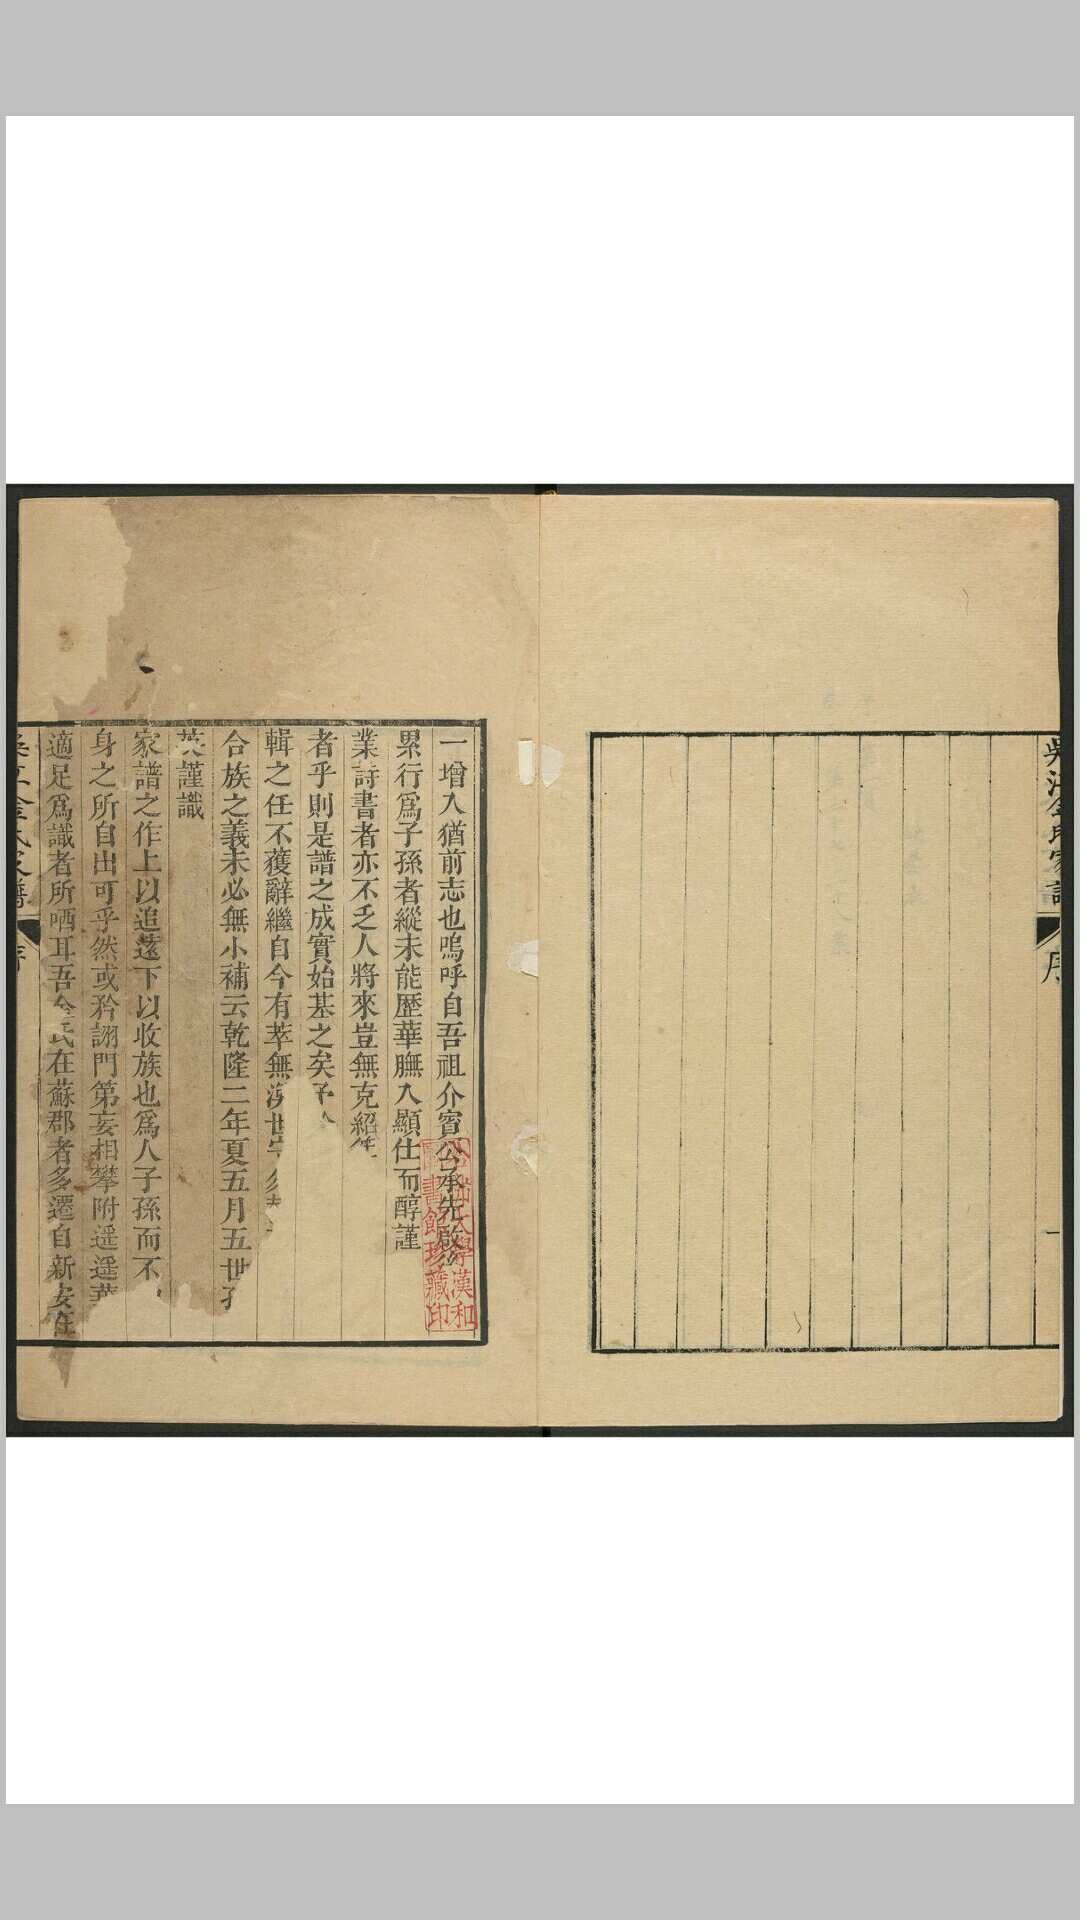 吳江金氏家譜
序
一
一增入猶前志也嗚呼自吾祖介賓公承先啟
累行爲子孫者縱未能歷華膴入顯仕而醇謹
業詩書者亦不乏人將來豈無克紹
者乎則是譜之成實始基之矣予
輯之任不獲辭繼自今有萃無渙世
合族之義未必無小補云乾隆二年夏五月五世孫
英謹識
家譜之作上以追遠下以收族也爲人子孫而不
身之所自出可乎然或矜詡門第妄相攀附遥遥華
適足爲識者所哂耳吾金氏在蘇郡者多遷自新安在
吳江金氏家譜
序
哈佛大學漢和
圖書館珍藏印